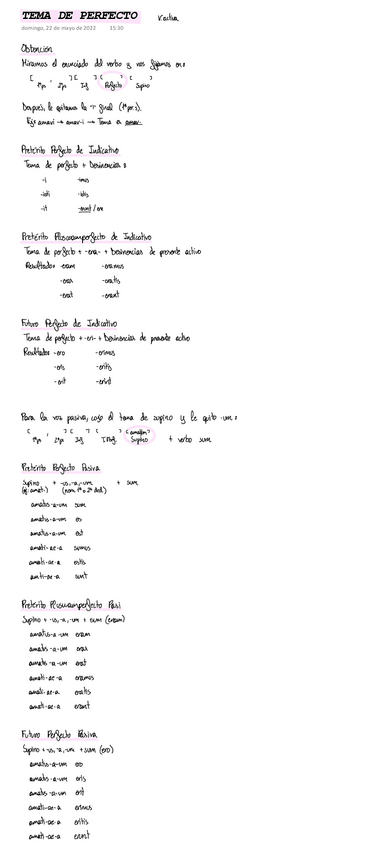 TEMA DE PERFECTO V. activa
domingo, 22 de mayo de 2022 15:30
Obtención
Miramos el enunciado del verbo y nos fijamos en:
[ 1ªps , 2ªps ] [ Inf ] [ Perfecto ] [ Supino ]
Después, le quitamos la -i final (1ª per.s).
Ej: amavi → amav-i → Tema es amav-
Pretérito Perfecto de Indicativo
Tema de perfecto + Desinencias:
-i -imus
-isti -istis
-it -erunt / ere
Pretérito Pluscuamperfecto de Indicativo
Tema de perfecto + -era- + Desinencias de presente activo
Resultados -eram -eramus
-eras -eratis
-erat -erant
Futuro Perfecto de Indicativo
Tema de perfecto + -eri- + Desinencias de presente activo
Resultados -ero -erimus
-eris -eritis
-erit -erint
Para la voz pasiva, cojo el tema de supino y le quito -um:
[ 1ªps , 2ªps ] [ Inf ] [ T.Perf. ] [ amatum Supino ] + verbo sum
Pretérito Perfecto Pasiva
Supino + -us, -a, -um + sum
(ej: amat-) (nom. 1ª o 2ª decl)
amatus-a-um sum
amatus-a-um es
amatus-a-um est
amati-ae-a sumus
amati-ae-a estis
amati-ae-a sunt
Pretérito Pluscuamperfecto Pasi
Supino + -us, -a, -um + sum (eram)
amatus-a-um eram
amatus-a-um eras
amatus-a-um erat
amati-ae-a eramus
amati-ae-a eratis
amati-ae-a erant
Futuro Perfecto Pasiva
Supino + -us, -a, -um + sum (ero)
amatus-a-um ero
amatus-a-um eris
amatus-a-um erit
amati-ae-a erimus
amati-ae-a eritis
amati-ae-a erunt